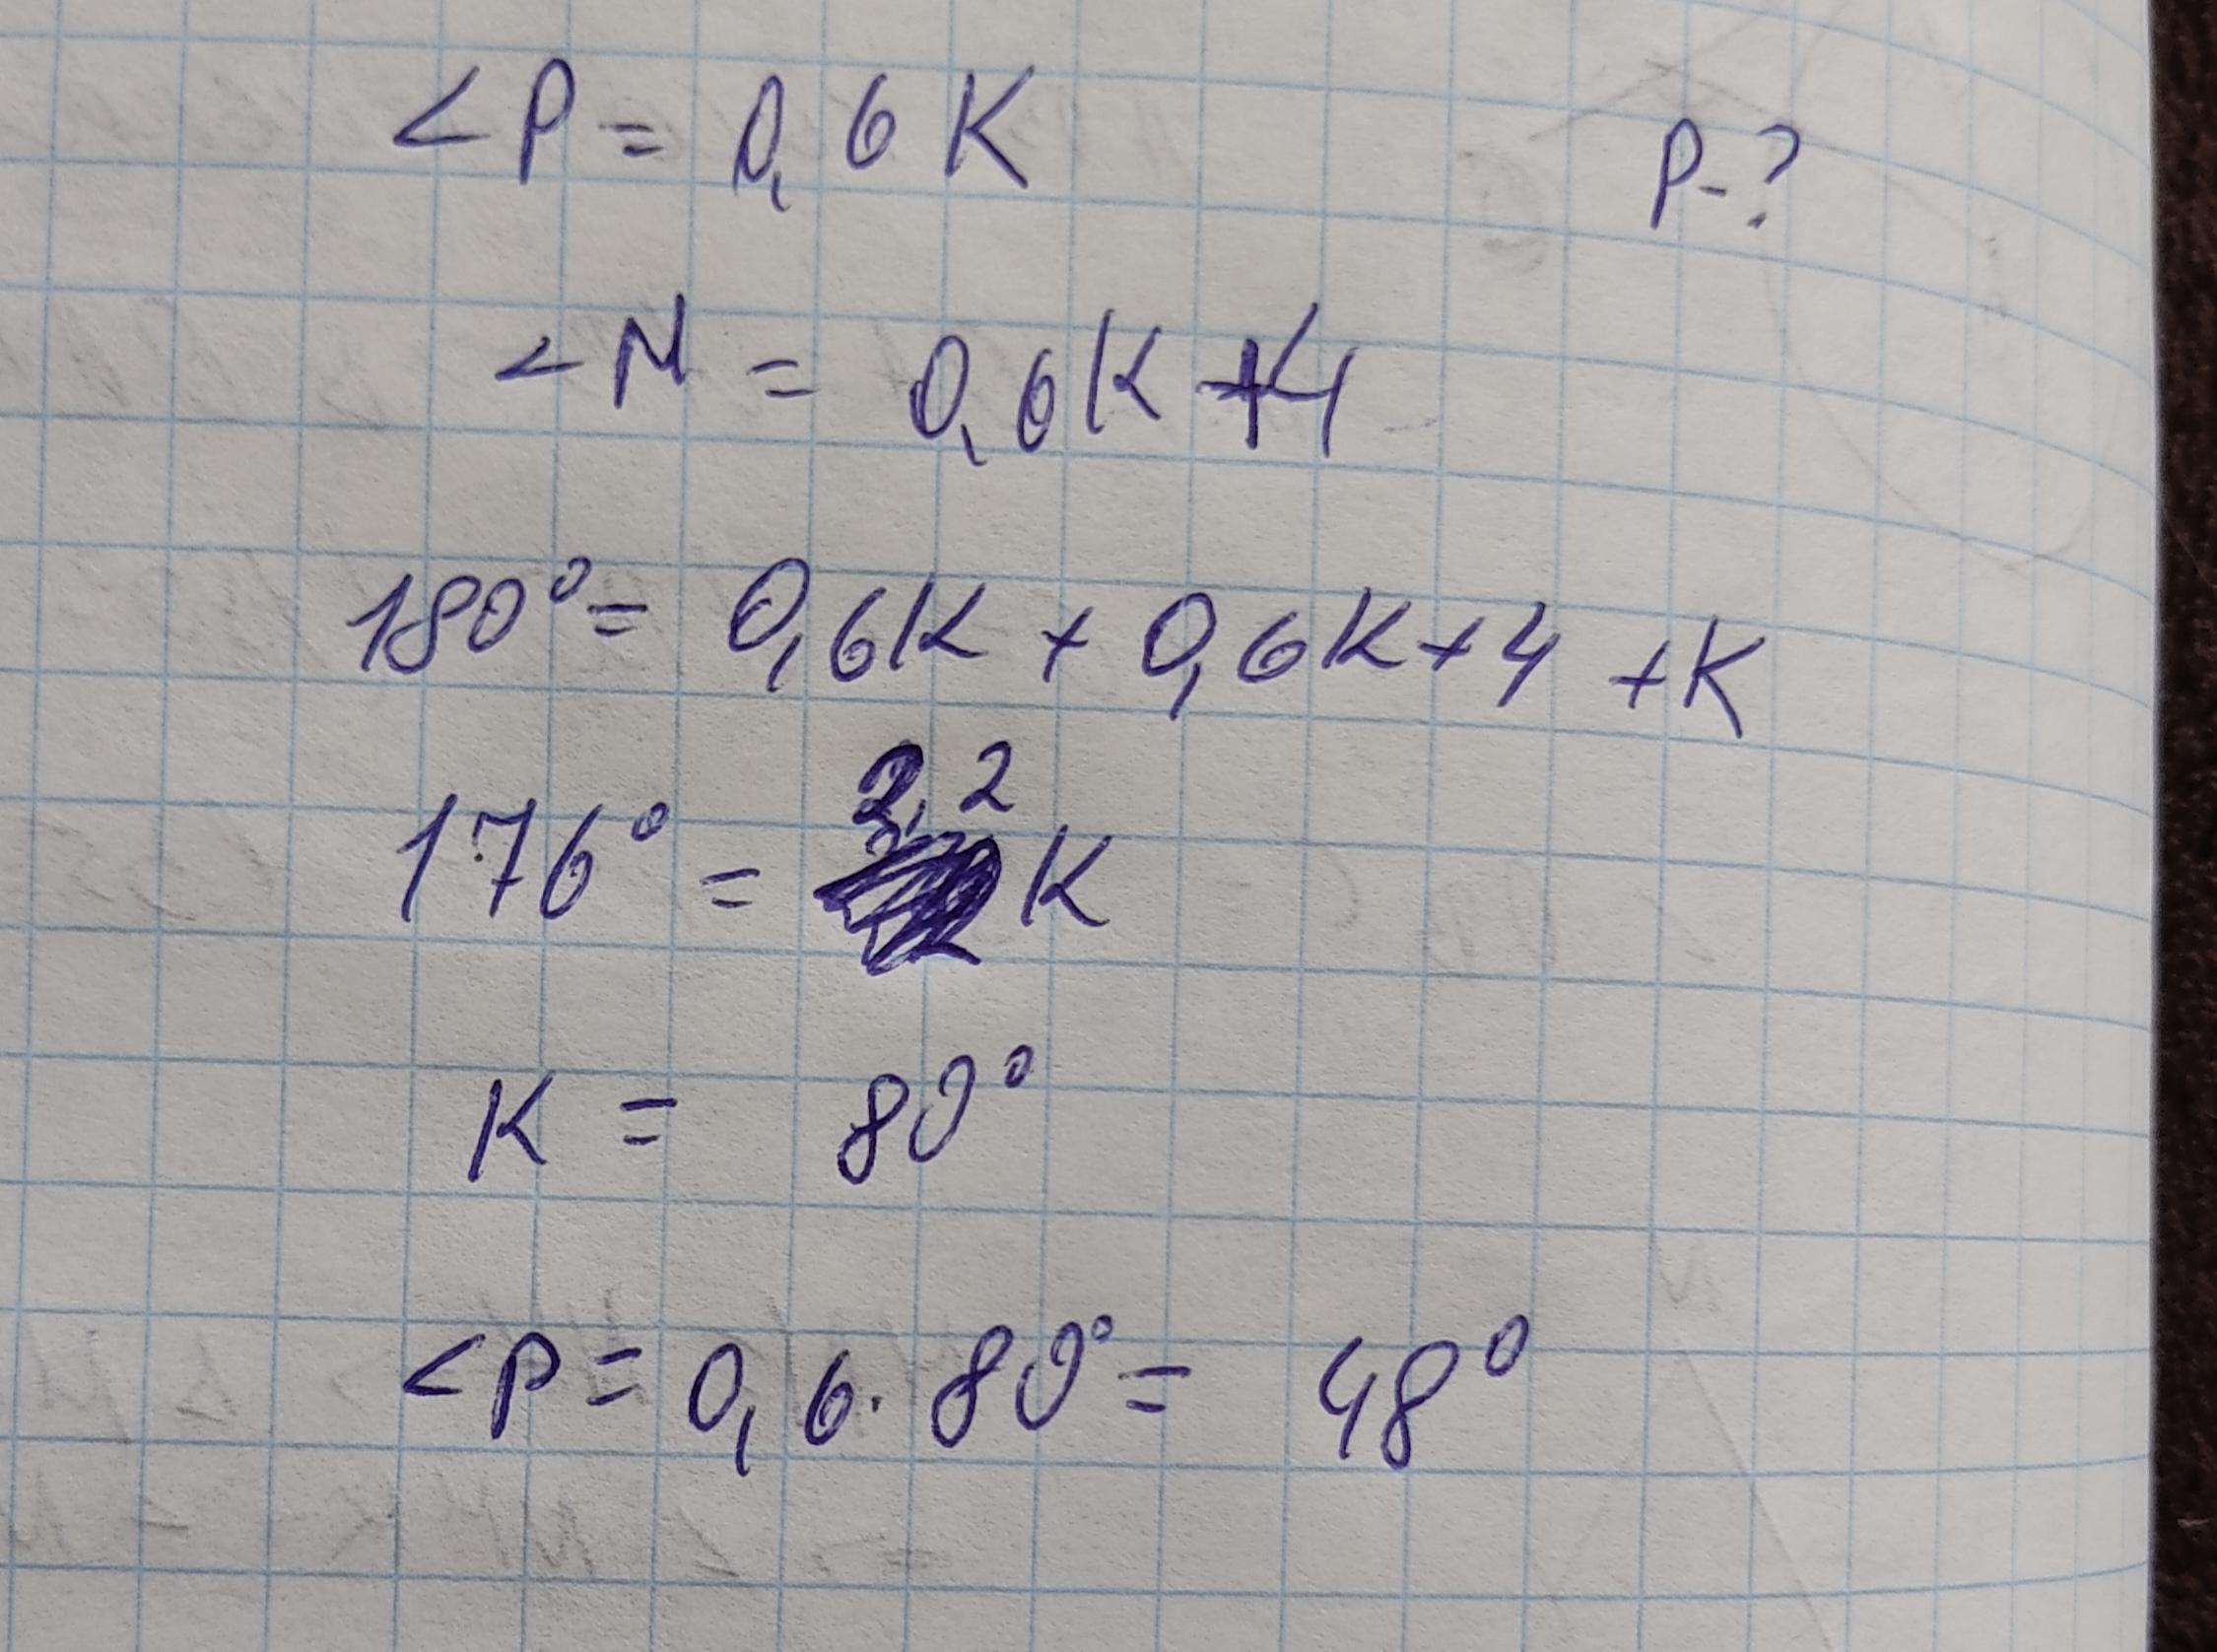 <P = 0,6K P-?
<N = 0,6K+4
180° = 0,6K + 0,6K+4 +K
176° = 2,2 K
K = 80°
<P = 0,6 · 80° = 48°